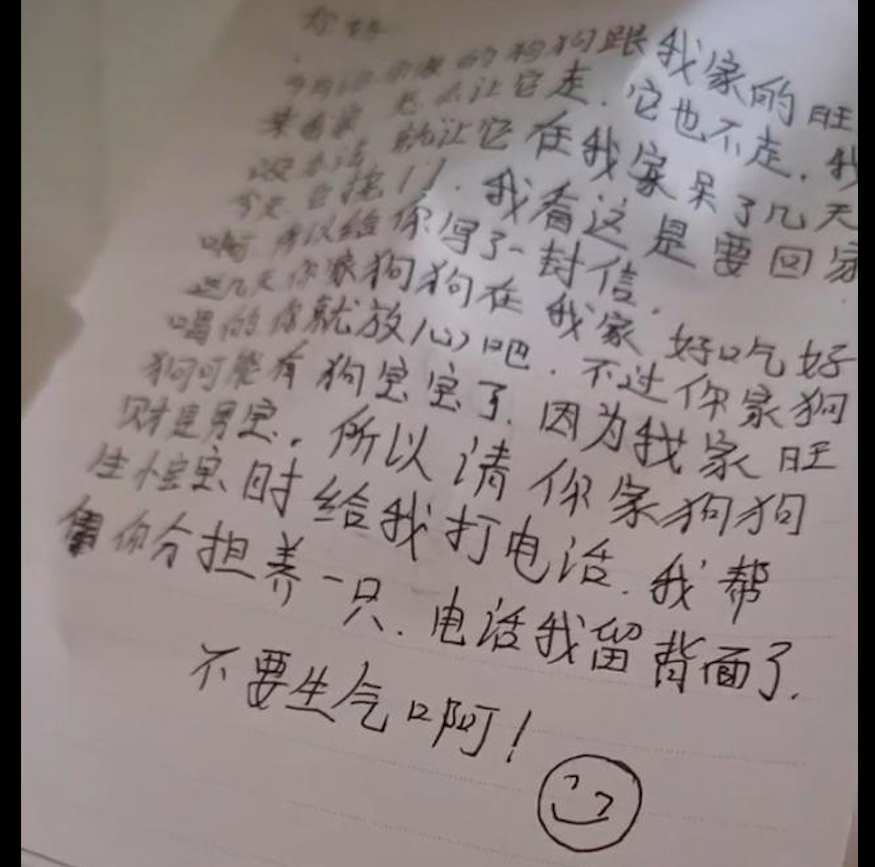 你好
的狗狗跟我家的旺
来我家 怎么让它走.它也不走.我
没办法 就让它在我家呆了几天
今天它挠门.我看这是要回家
啊 所以给你写了一封信.
这几天你家狗狗在我家 好吃好
喝的你就放心吧.不过你家狗
狗可能有狗宝宝了.因为我家旺
财是男宝.所以请你家狗狗
生小宝宝时给我打电话.我帮
你分担养一只.电话我留背面了.
不要生气啊!